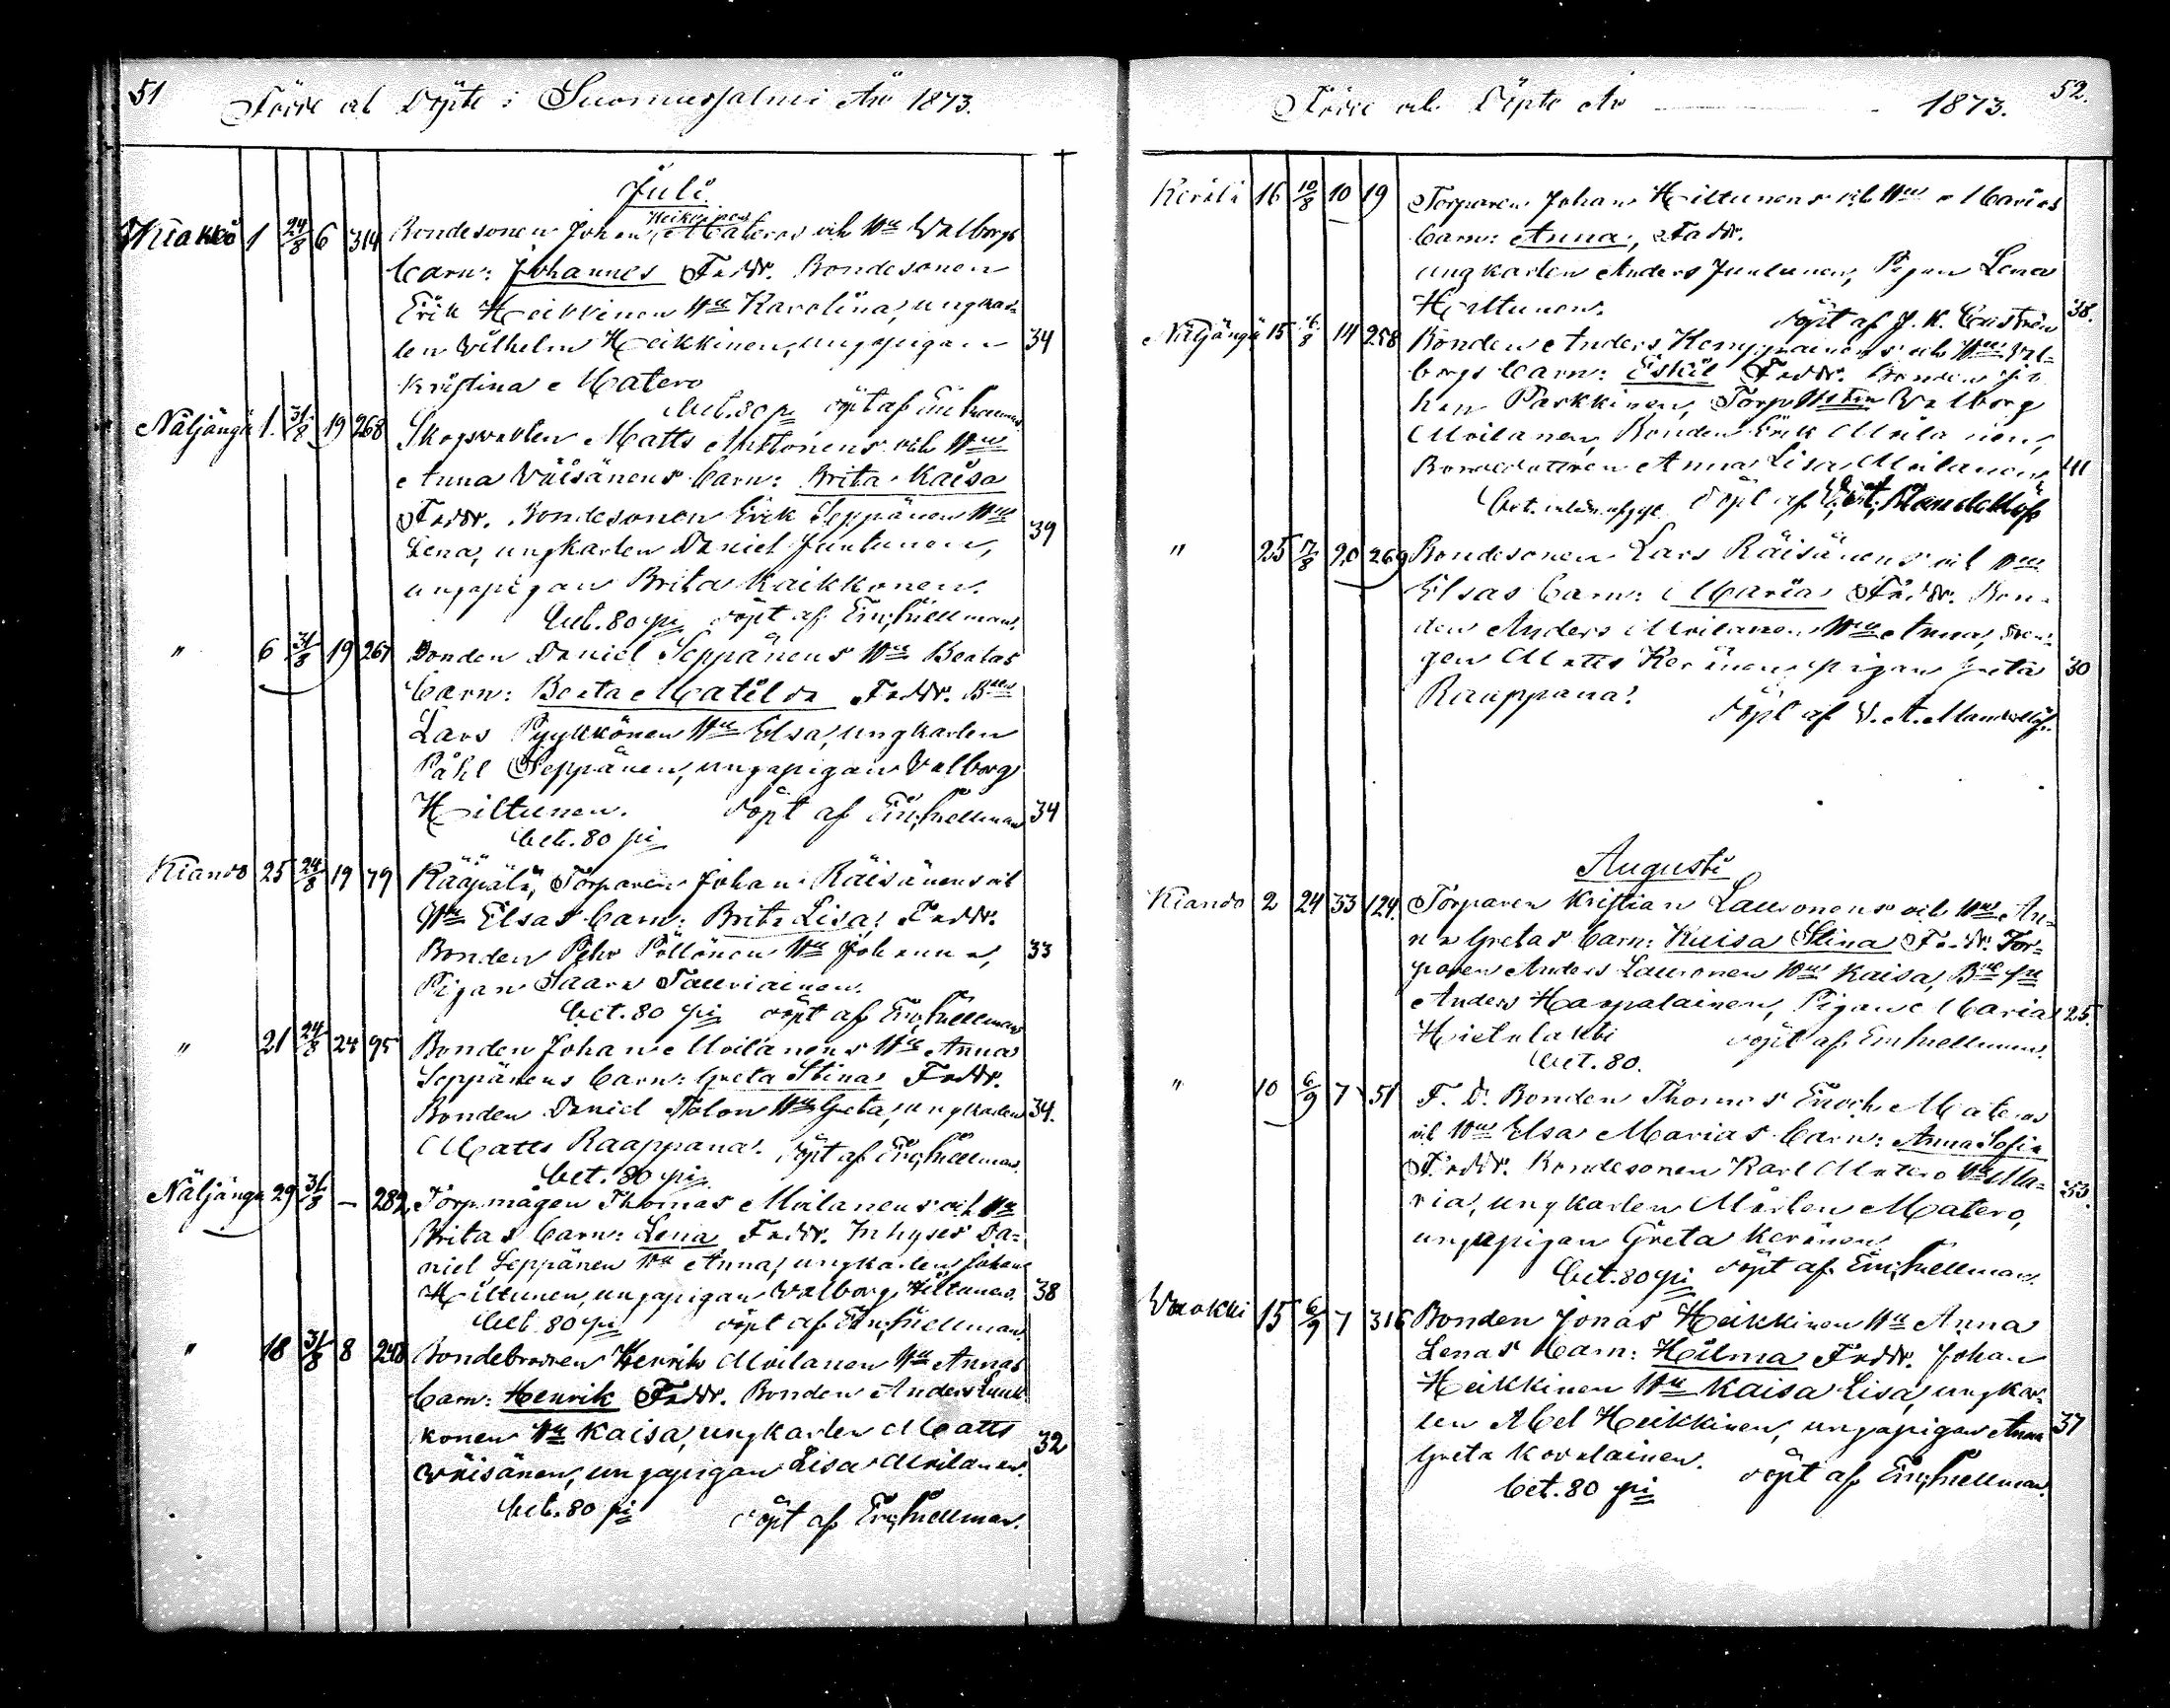 51
Födde och Döpte i Suomussalmi År 1873.
Juli.
Kiakko 1 24/8 6 314 Bondesonen Johan Heikkinen Materos och Hu Walborgs
barn: Johannes Faddr. Bondesonen
Erik Heikkinen Hu Karolina, ungkar-
len Wilhelm Heikkinen, ungapigan 34
Kristina Matero
bet. 80 pi döpt af Em. Snellman.
Näljängä 1. 31/8 19 268 Skogsvakten Matts Anttonens och Hus
Anna Väisänens barn: Brita Kaisa
Faddr. Bondesonen Erik Seppänen Hu
Lena, ungkarlen Daniel Juntunen, 39
ungapigan Brita Kaikkonen.
bet. 80 pi döpt af Em. Snellman.
" 6 31/8 19 267 Bonden Daniel Seppänens Hu Beatas
barn: Beata Matilda Faddr. Bden
Lars Pyykkönen Hu Elsa, ungkarlen
Påhl Seppänen, ungapigan Valborg
Hiltunen. döpt af Em. Snellman 34
bet. 80 pi
Kiando 25 24/8 19 79 Rääpälä, Torparen Johan Räisänens och
Hu Elsas barn: Brita Lisa: Faddr.
Bonden Pehr Pöllönen Hu Johanna, 33
Pigan Saara Tauriainen.
bet. 80 pi döpt af Em. Snellman
" 21 24/8 24 95 Bonden Johan Moilanens Hu Anna
Seppänens barn: Greta Stina Faddr.
Bonden Daniel Talon Hu Greta, ungkarlen 34.
Matts Raappana. döpt af Em. Snellman.
bet. 80 pi.
Näljängä 29 31/8 — 282 Torpmågen Thomas Moilanens och Hu
Britas barn: Lena Faddr. Inhyses Da-
niel Seppänen Hu Anna, ungkarlen Johan
Hiltunen, ungapigan Walborg Hiltunen. 38
bet. 80 pi döpt af Em. Snellman.
" 18 31/8 8 248 Bondebrodren Henrik Moilanen Hu Annas
barn: Henrik Faddr. Bonden Anders Luuk-
konen Hu Kaisa, ungkarlen Matts 32
Wäisänen, ungapigan Lisa Moilanen.
bet. 80 pi döpt af Em. Snellman.
52.
Födde och Döpte År 1873.
Kerälä 16 10/8 10 19 Torparen Johan Hiltunens och Hus Marias
barn: Anna, Faddr.
ungkarlen Anders Juntunen, Pigan Lena
Hiltunen. döpt af J. K. 38.
Näljängä 15 8 14 258 Bonden Anders Kemppainens och Hus Val-
borgs barn: Eskil Faddr. Bonden Jo-
han Parkkinen, Valborg
Moilanen, Bonden Erik Moilanen,
Bondedottren Anna Lisa Moilanen 41
bet. döpt af V. A. Mandellöf
" 25 17/8 20 269 Bondesonen Lars Räisänens och Hus
Elsas barn: Maria Faddr. Bon-
den Anders Moilanen Hu Anna, drän-
gen Matts Keränen, pigan Greta 30
Raappana.
döpt af V. A. Mandellöf.
Augusti
Kiando 2 24 33 124. Torparen Kristian Lauronens och Hus An-
na Gretas barn: Kaisa Stina Faddr. Tor-
paren Anders Lauronen Hus Kaisa,
Anders Haapalainen, Pigan Maria 25.
Hietalahti döpt af Em. Snellman.
bet. 80.
" 10 6/9 7 51 F. D. Bonden Thomas Enoch Materos
och Hus Elsa Marias barn: Anna Sofia
Faddr. Bondesonen Karl Matero Hu Ma-
ria, ungkarlen Mårten Matero, 53.
ungapigan Greta Keränen
bet. 80 pi döpt af Em. Snellman.
Vuokki 15 6/9 7 316 Bonden Jonas Heikkinen Hu Anna
Lenas barn: Hilma Faddr. Johan
Heikkinen Hu Kaisa Lisa, ungkar-
len Abel Heikkinen, ungapigan Anna 37
Greta Kovalainen.
bet. 80 pi döpt af Em. Snellman.